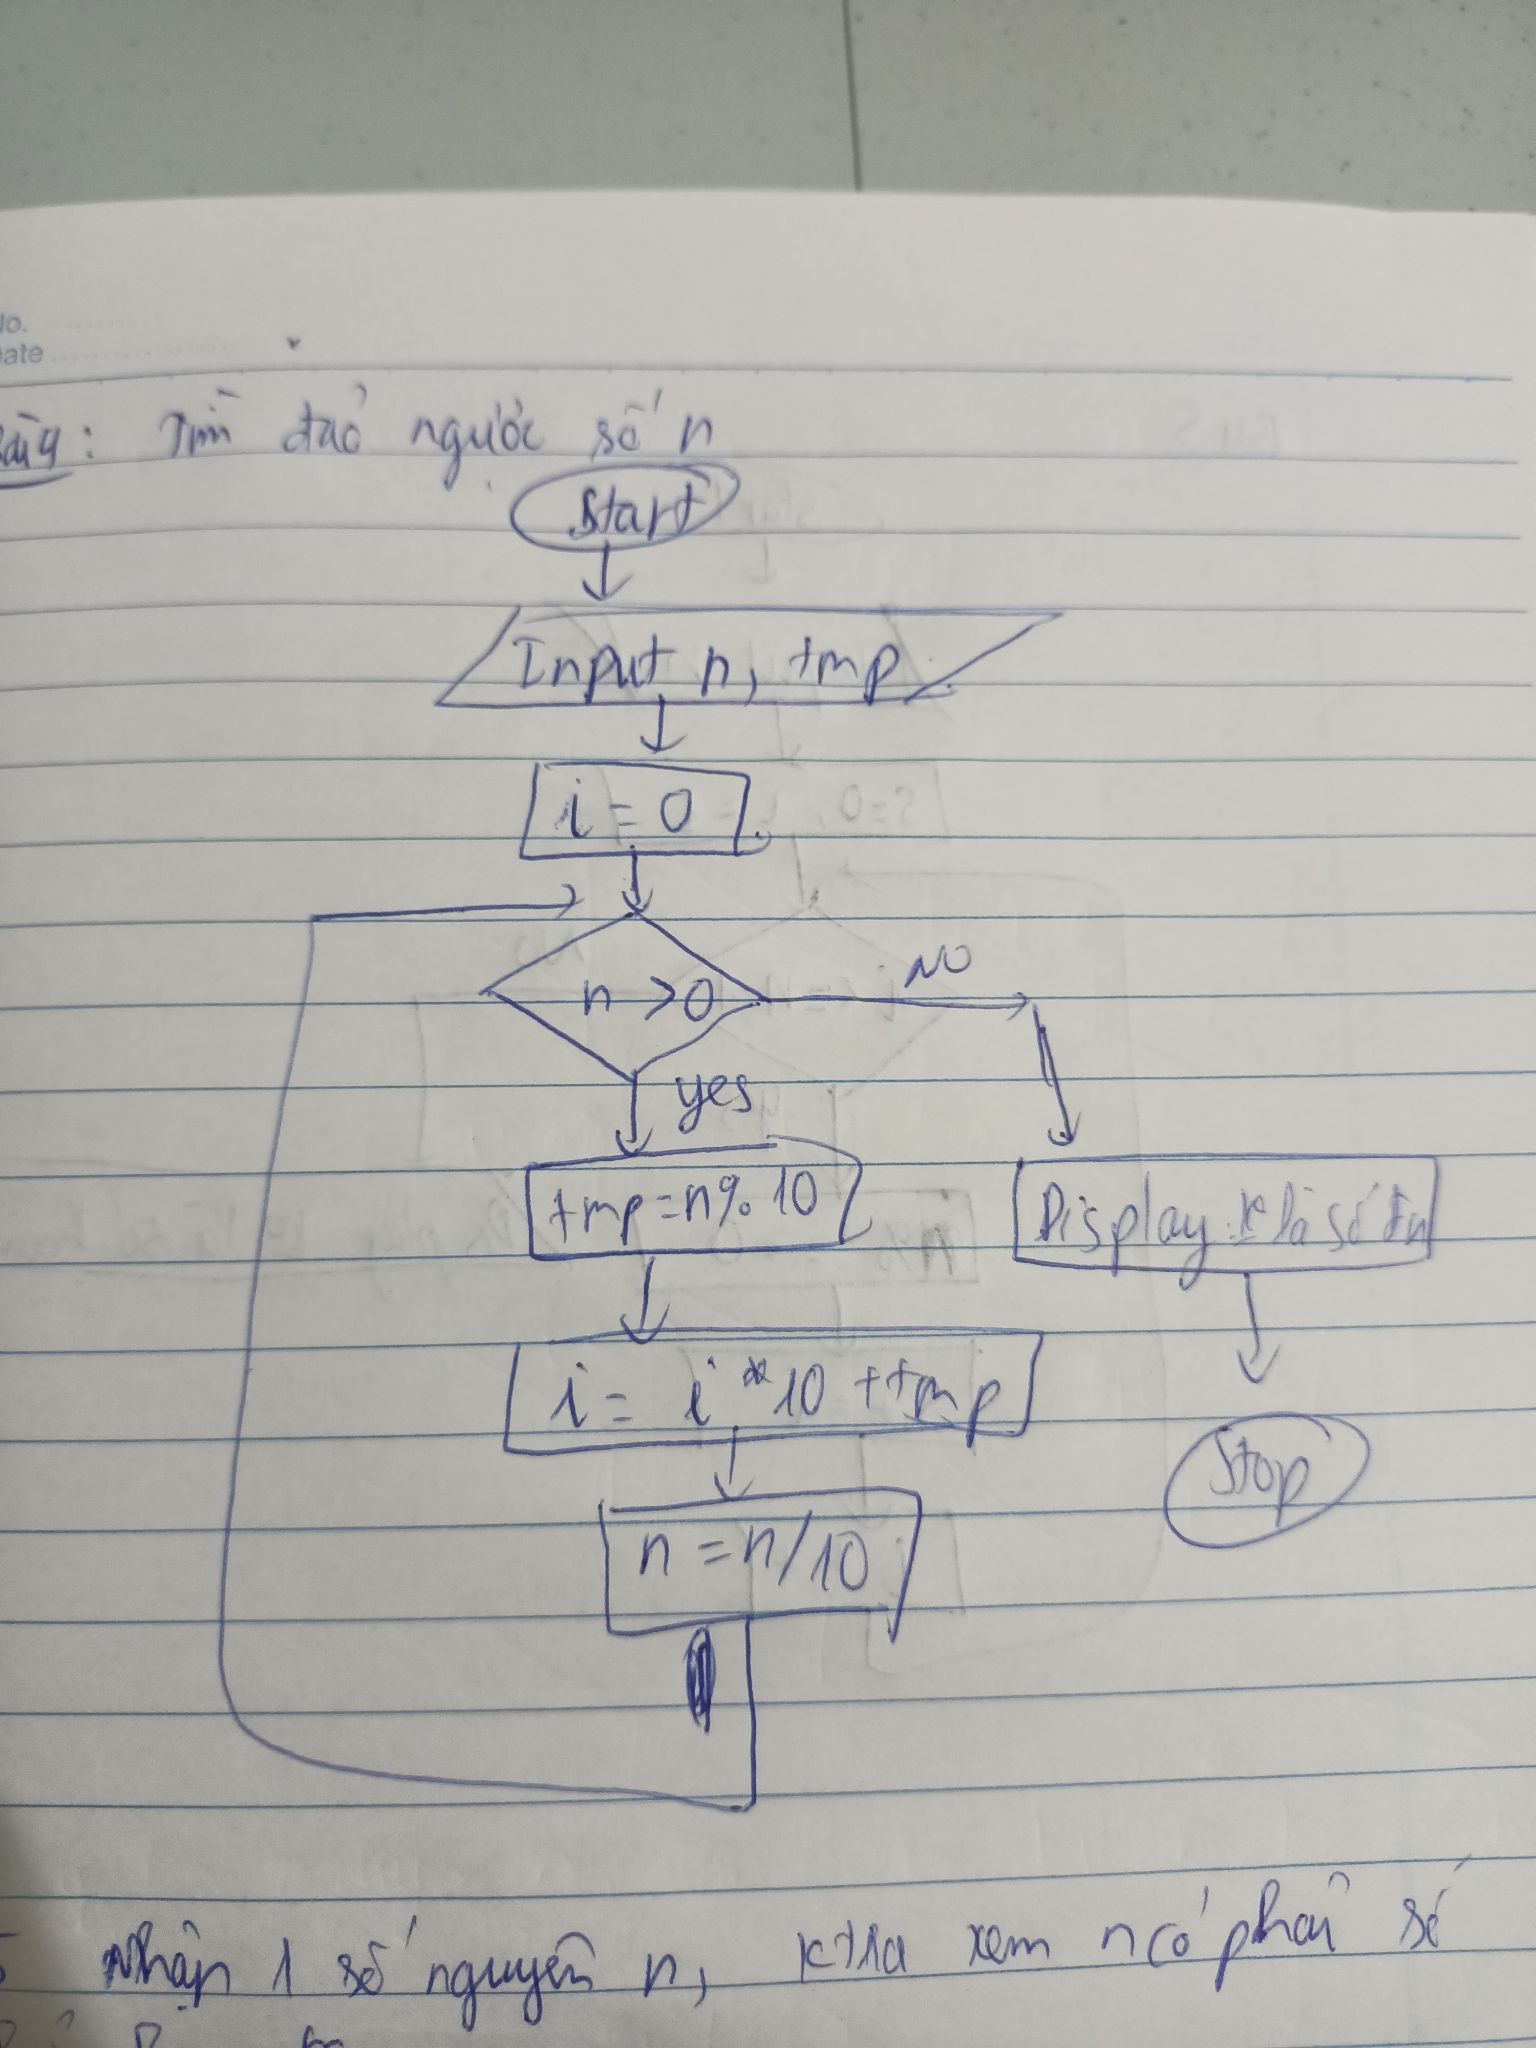 No.
Date
Bài 4: Tìm đảo ngược số n
Start
Input n, tmp
i = 0
n > 0
NO
yes
tmp = n % 10
Display: là số
i = i * 10 + tmp
n = n / 10
Stop
Nhập 1 số nguyên n, ktra xem n có phải số